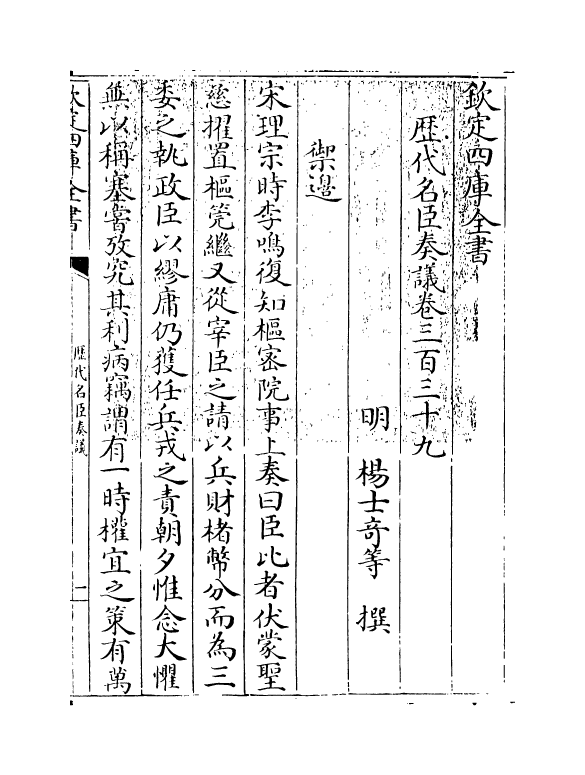 欽定四庫全書
歴代名臣奏議卷三百三十九
明　楊士竒等　撰
禦邊
宋理宗時李鳴復知樞宻院事上奏曰臣比者伏蒙聖
慈擢置樞筦繼又從宰臣之請以兵財楮幣分而為三
委之執政臣以繆庸仍獲任兵戎之責朝夕惟念大懼
無以稱塞嘗攷究其利病竊謂有一時權宜之策有萬
欽定四庫全書
歴代名臣奏議
一